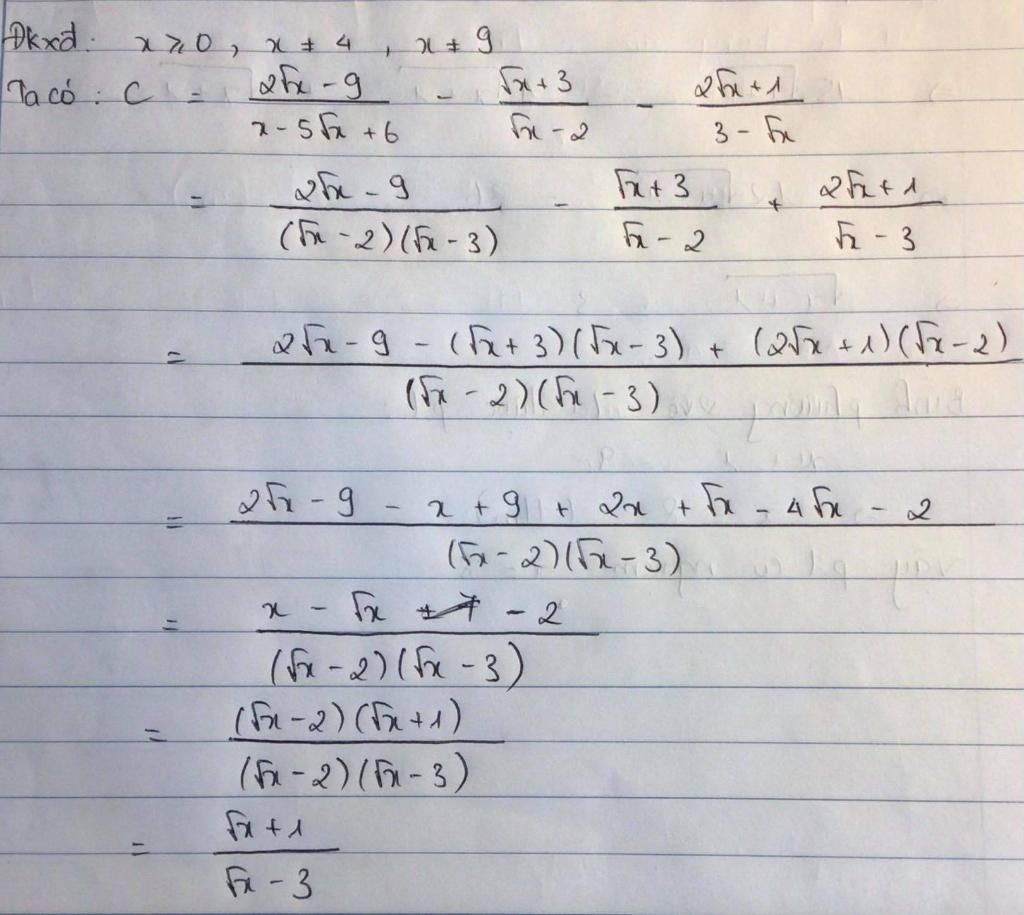 Đkxđ: x ⩾ 0, x ≠ 4, x ≠ 9
Ta có: C = (2√x - 9)/(x - 5√x + 6) - (√x + 3)/(√x - 2) - (2√x + 1)/(3 - √x)
= (2√x - 9)/((√x - 2)(√x - 3)) - (√x + 3)/(√x - 2) + (2√x + 1)/(√x - 3)
= (2√x - 9 - (√x + 3)(√x - 3) + (2√x + 1)(√x - 2))/((√x - 2)(√x - 3))
= (2√x - 9 - x + 9 + 2x + √x - 4√x - 2)/((√x - 2)(√x - 3))
= (x - √x - 2)/((√x - 2)(√x - 3))
= ((√x - 2)(√x + 1))/((√x - 2)(√x - 3))
= (√x + 1)/(√x - 3)